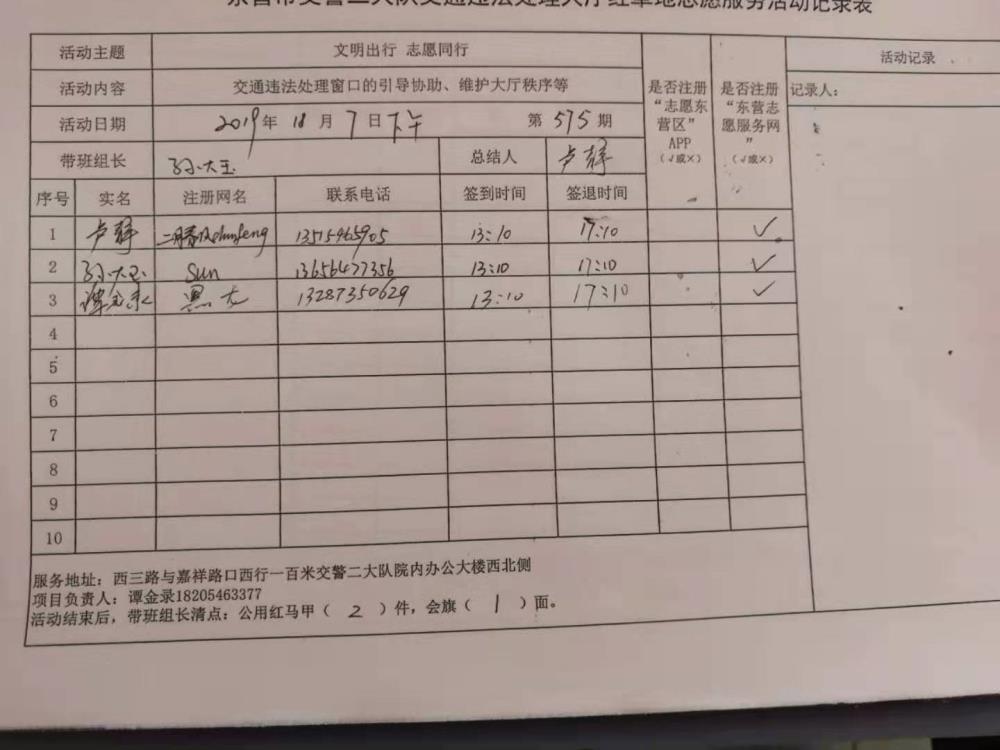 东营市交警二大队交通违法处理大厅红草地志愿服务活动记录表
活动主题 文明出行 志愿同行 是否注册“志愿东营区”APP（√或×） 是否注册“东营志愿服务网”（√或×） 活动记录
活动内容 交通违法处理窗口的引导协助、维护大厅秩序等 记录人：
活动日期 2019年 10月 7日 下午 第 575 期
带班组长 孙大玉 总结人 卢静
序号 实名 注册网名 联系电话 签到时间 签退时间
1 卢静 二月春风chunfeng 13515465905 13:10 17:10 ✓
2 孙大玉 Sun 13656477356 13:10 17:10 ✓
3 谭金录 黑大 13287350629 13:10 17:10 ✓
4
5
6
7
8
9
10
服务地址：西三路与嘉祥路口西行一百米交警二大队院内办公大楼西北侧
项目负责人：谭金录18205463377
活动结束后，带班组长清点：公用红马甲（ 2 ）件，会旗（ 1 ）面。